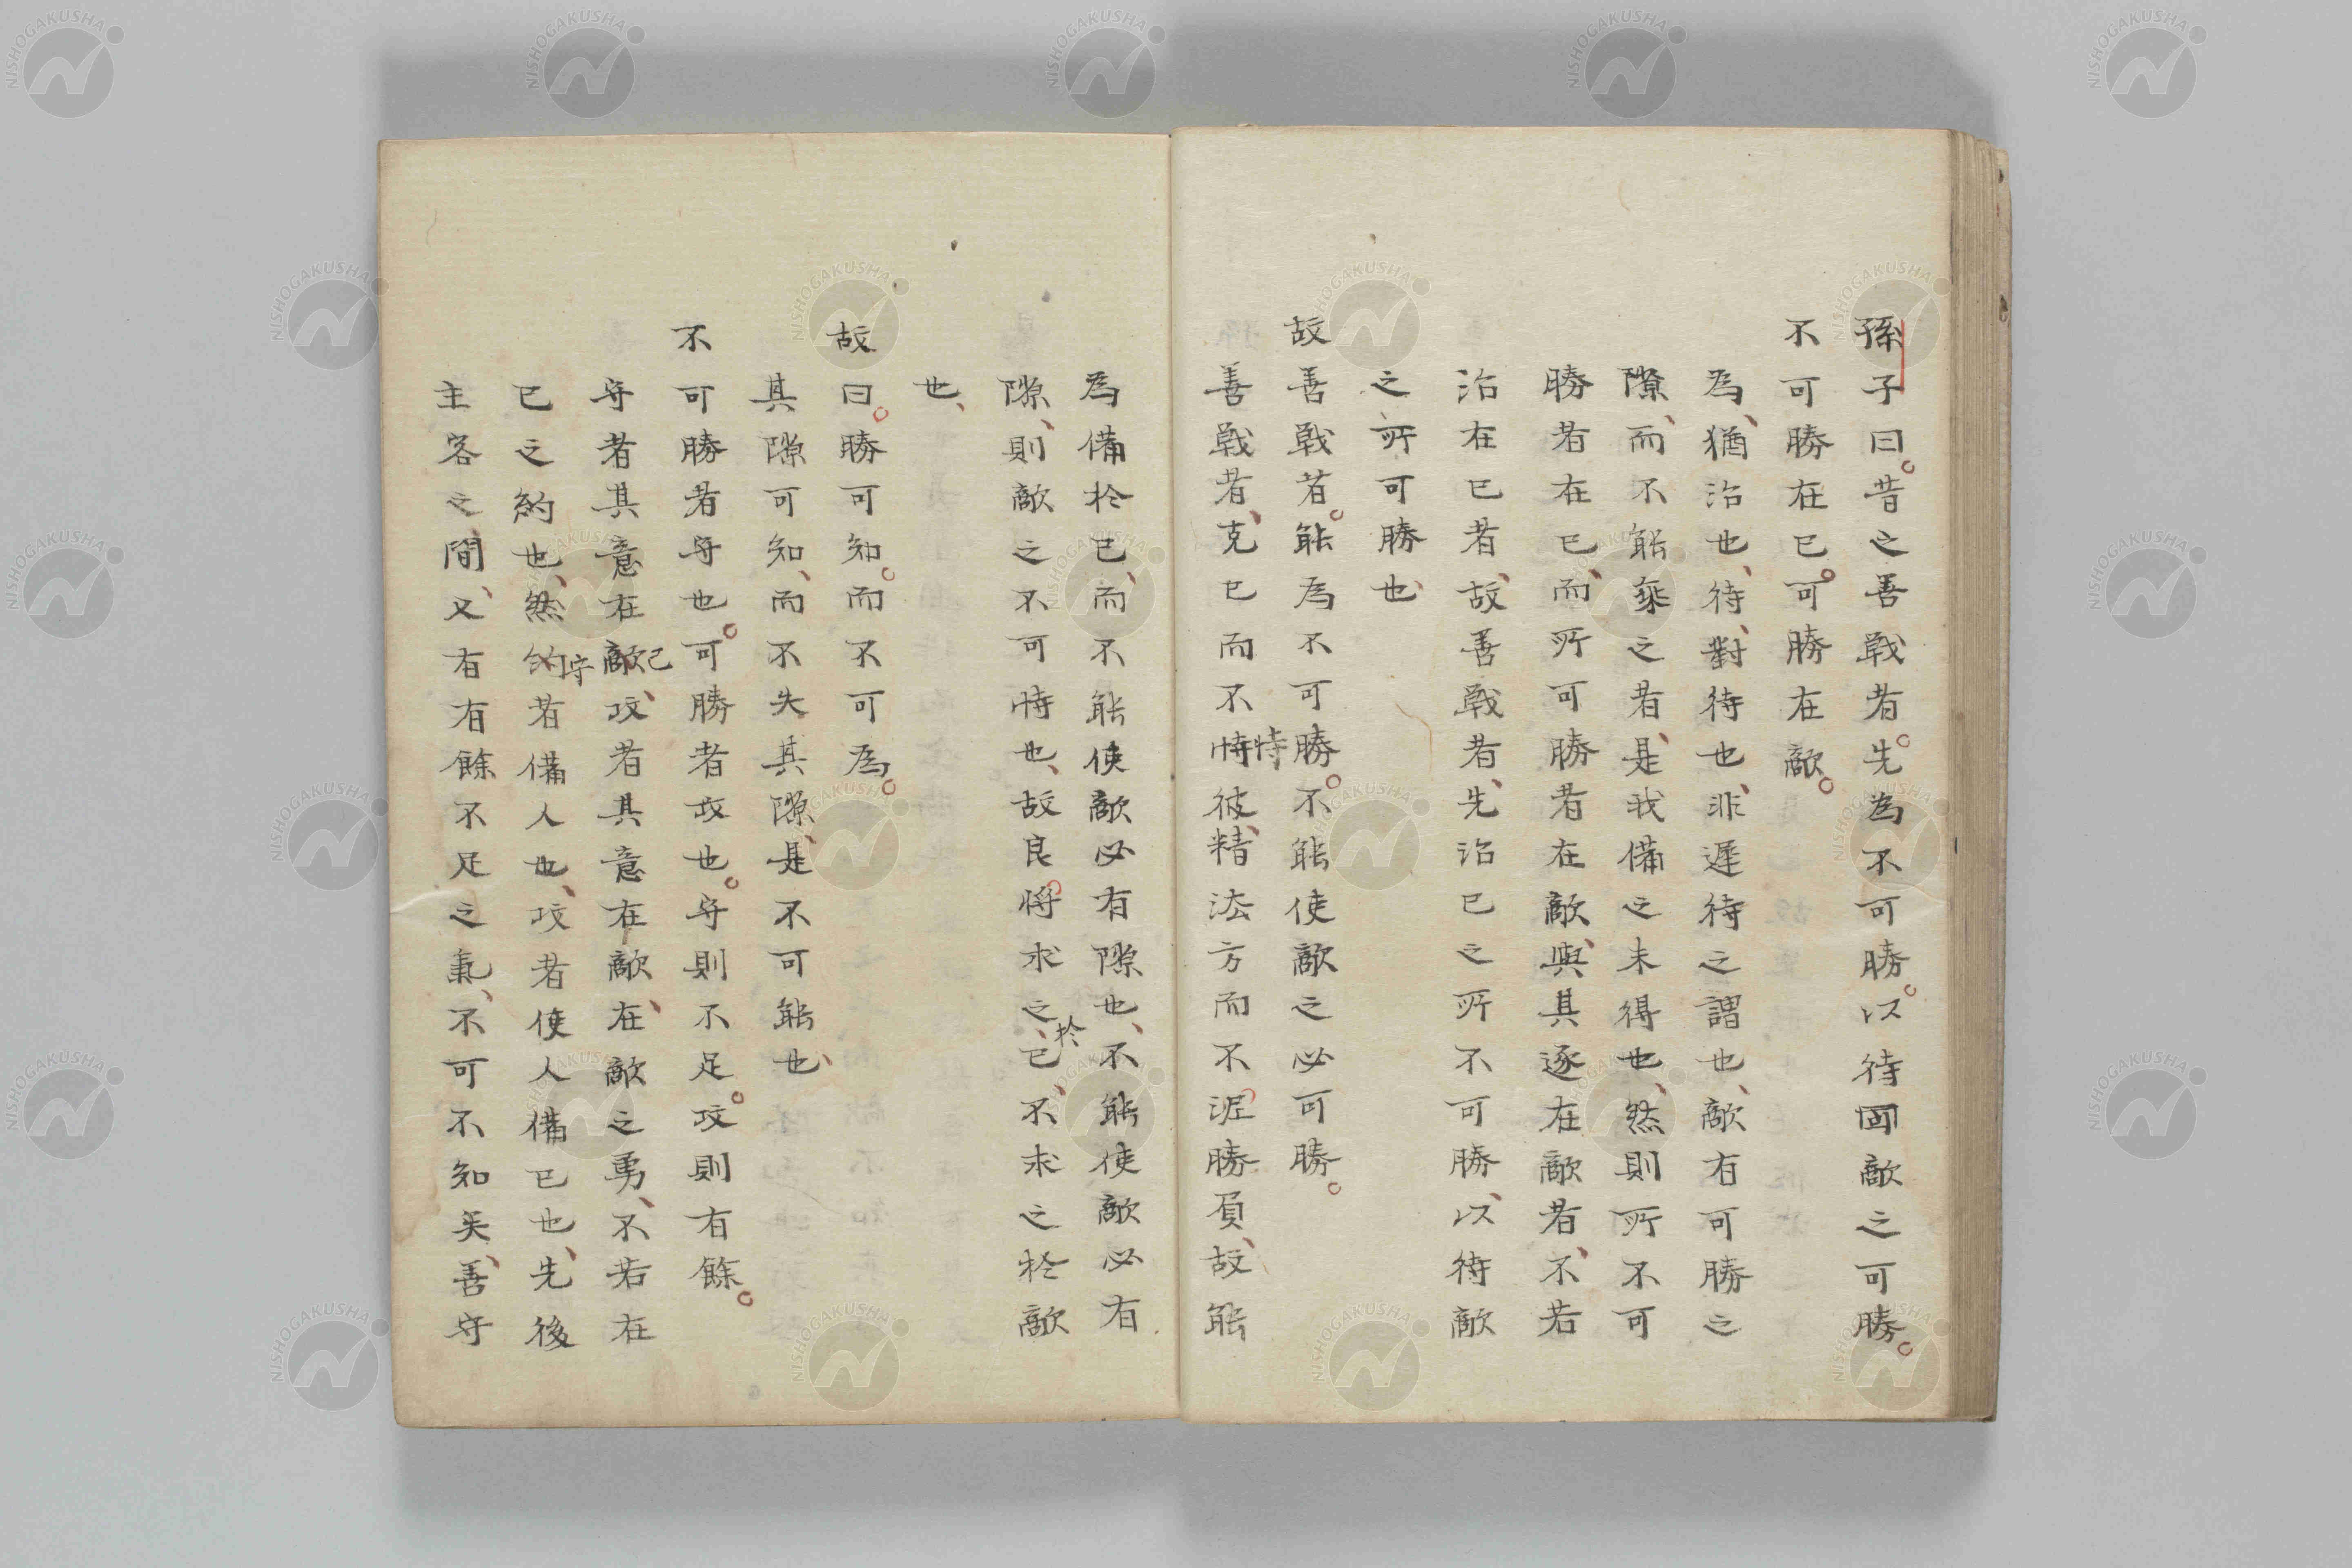 孫子曰昔之善戰者先為不可勝以待回敵之可勝
不可勝在已可勝在敵
為猶治也待對待也非遲待之謂也敵有可勝之
隙而不能乘之者是我備之未得也然則所不可
勝者在已而所可勝者在敵與其逐在敵者不若
治在已者故善戰者先治已之所不可勝以待敵
之所可勝也
故善戰者能為不可勝不能使敵之必可勝
善戰者克已而不恃彼精法方而不泥勝負故能
恃
為備於已而不能使敵必有隙也不能使敵必有
隙則敵之不可恃也故良将求之已不求之於敵
於
也
故曰勝可知而不可為
其隙可知而不失其隙是不可能也
不可勝者守也可勝者攻也守則不足攻則有餘
守者其意在敵攻者其意在敵在敵之勇不若在
己
已之約也然約者備人也攻者使人備已也先後
守
主客之間又有有餘不足之氣不可不知矣善守
NISHOGAKUSHA